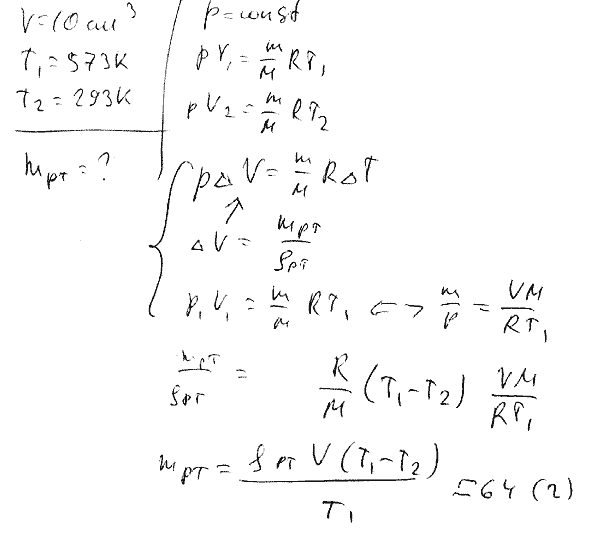 V=10 см³
T₁=573K
T₂=293K
m рт = ?
p=const
pV₁= m/M RT₁
pV₂= m/M RT₂
p△V= m/M R△T
↑
△V= m рт/ρ рт
p₁V₁= m/M RT₁ ⟷ m/p = VM/RT₁
m рт/ρ рт = R/M (T₁-T₂) VM/RT₁
m рт = ρ рт V(T₁-T₂)/T₁ =64 (г)